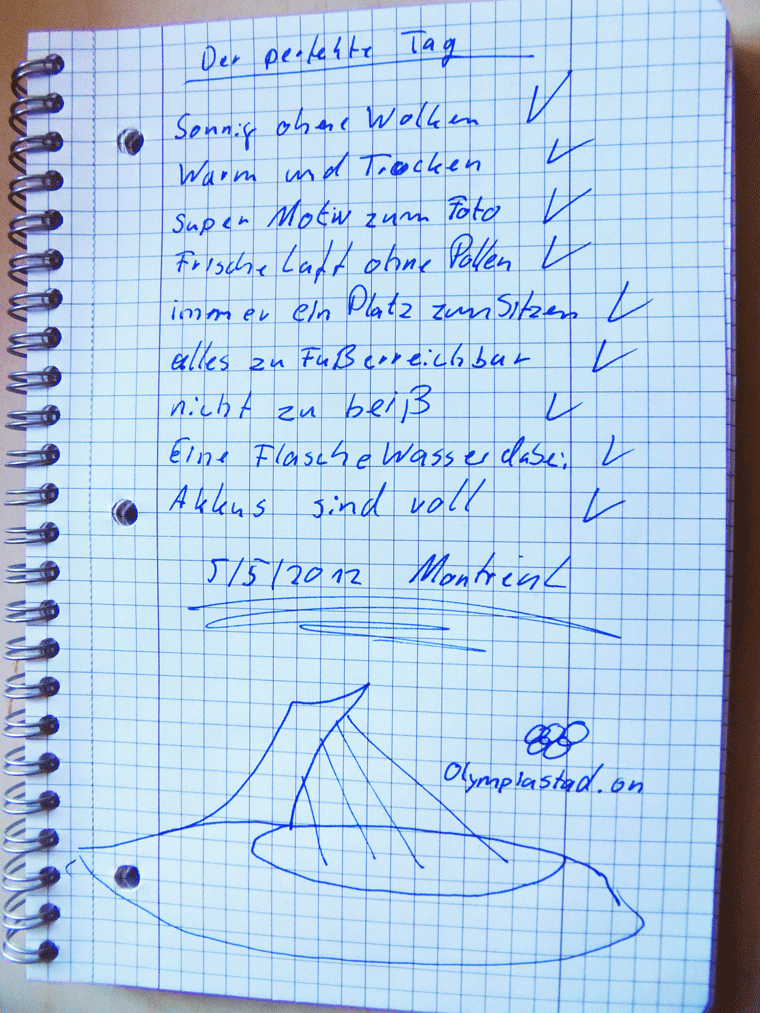 Der perfekte Tag
Sonnig ohne Wolken
Warm und Trocken
super Motiv zum Foto
Frische Luft ohne Pollen
immer ein Platz zum Sitzen
alles zu Fuß erreichbar
nicht zu heiß
Eine Flasche Wasser dabei
Akkus sind voll
5/5/2012 Montreal
Olympiastadion